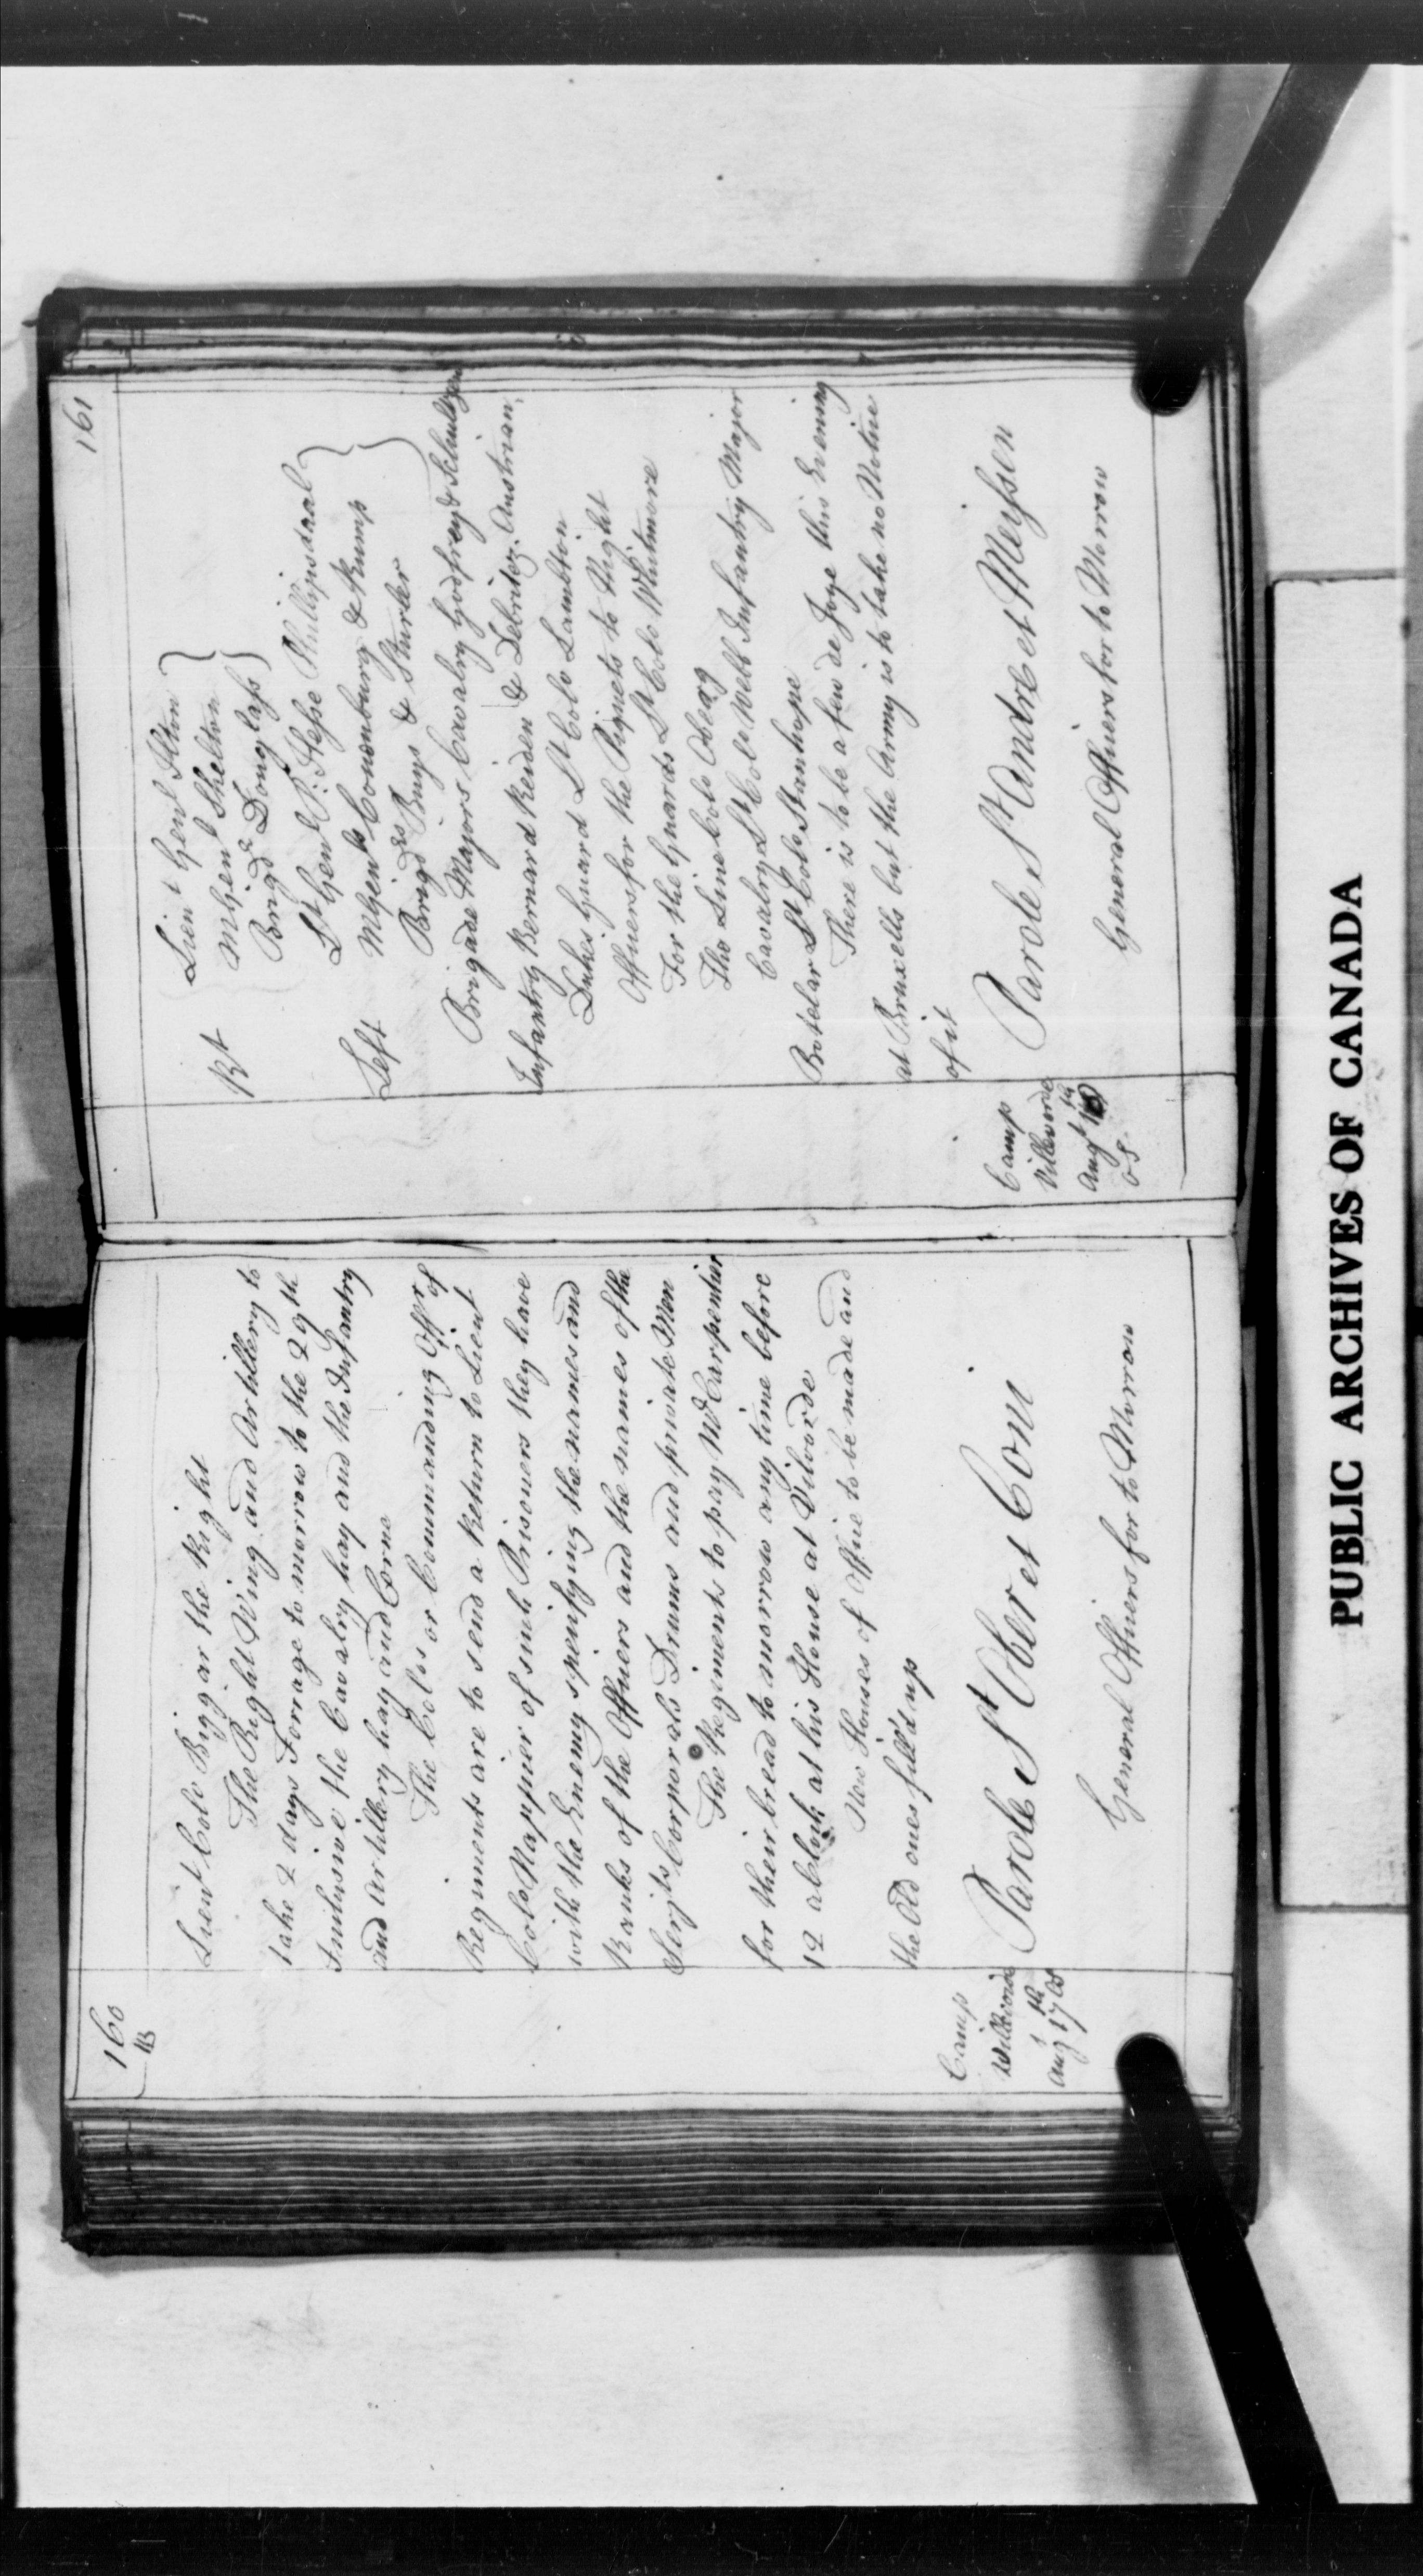 160
B
Lieut Colo Biggar the Right
The Right Wing and Artillery to
take 2 days Forrage to morrow to the 29th
Inclusive the Cavalry hay and the Infantry
and Artillery hay and Corne
The Colos or Commanding Offrs of
Regiments are to send a Return to Lieut
Colo Nappier of such Prisoners they have
with the Enemy specifying the names and
Ranks of the Officers and the names of the
Serjts Corporals Drums and private Men
The Regiments to pay Mr Carpentier
for their bread to morrow any time before
12 a Clock at his House at Vilvorde
New Houses of Office to be made and
the Old ones fill'd up
Camp
Willevorde
Augt 17th
Parole St Ober et Coni
General Officers for to Morrow
161
Rt
Lieut Genl Ilton
MGenl Skelton
Brigdr Douglass
Left
Lt Genl P: Hesse Phillipsdaal
MGenls Conenburg & Kump
Brigdrs Buys & Sturler
Brigade Majors Cavalry Godfrey &
Infantry Bernard Keiden & Debritez. Austrian.
Dukes Guard Lt Colo Lambton
Officers for the Piquets to Night
For the Guards Lt Colo Whitmore
The Line Colo Oberg
Cavalry Lt Colo Webb Infantry Major
Botelar Lt Colo Stanhope
There is to be a feu de Joye this Evening
at Bruxells but the Army is to take no Notice
of it
Camp
Villevorde
Augt 18th
OS
Parole St Andre et Meissen
General Officers for to Morrow
PUBLIC ARCHIVES OF CANADA